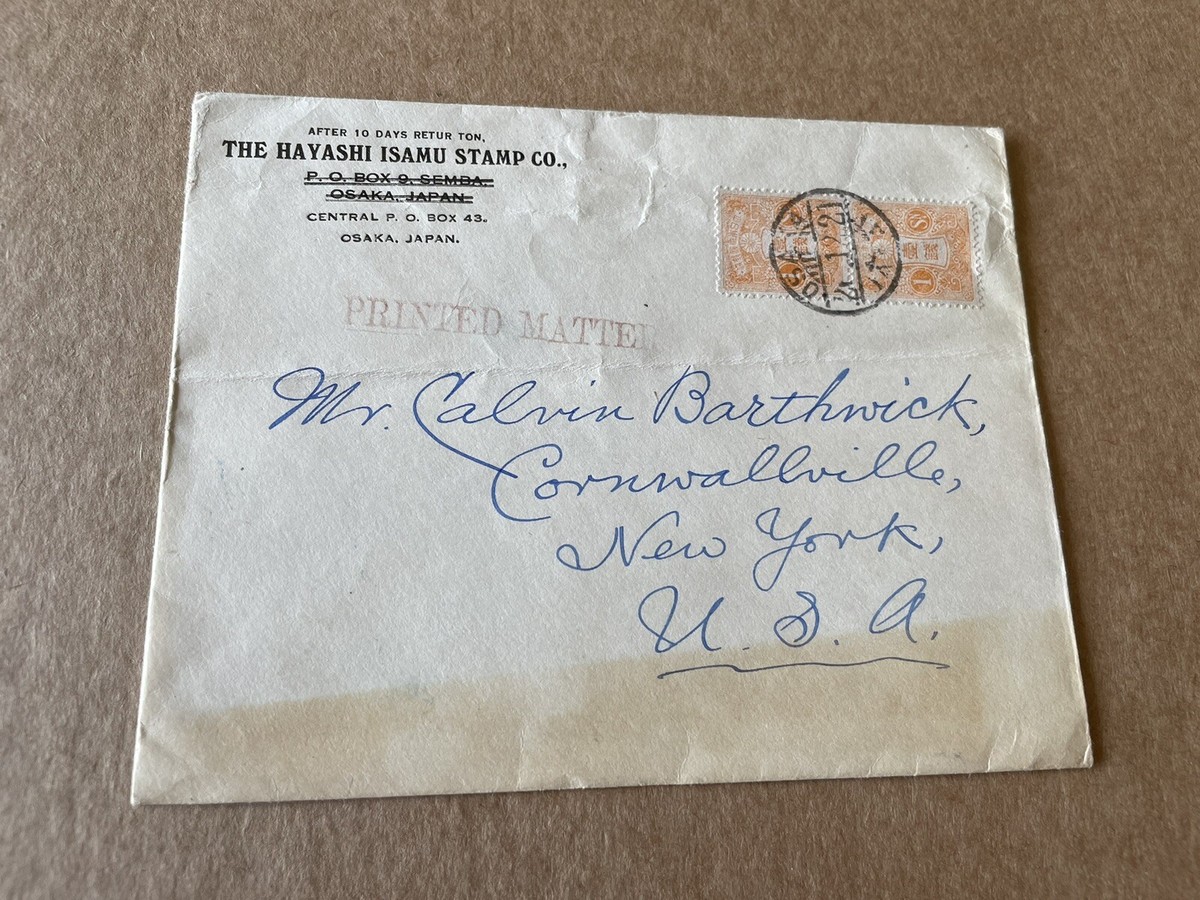 AFTER 10 DAYS RETUR TON,
THE HAYASHI ISAMU STAMP CO.,
P. O. BOX 9, SEMBA,
OSAKA, JAPAN
CENTRAL P. O. BOX 43.
OSAKA, JAPAN.
PRINTED MATTE
Mr. Calvin Barthwick,
Cornwallville,
New York,
U. S. A.